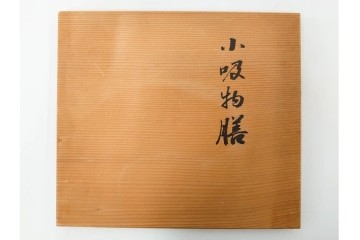 小吸物膳